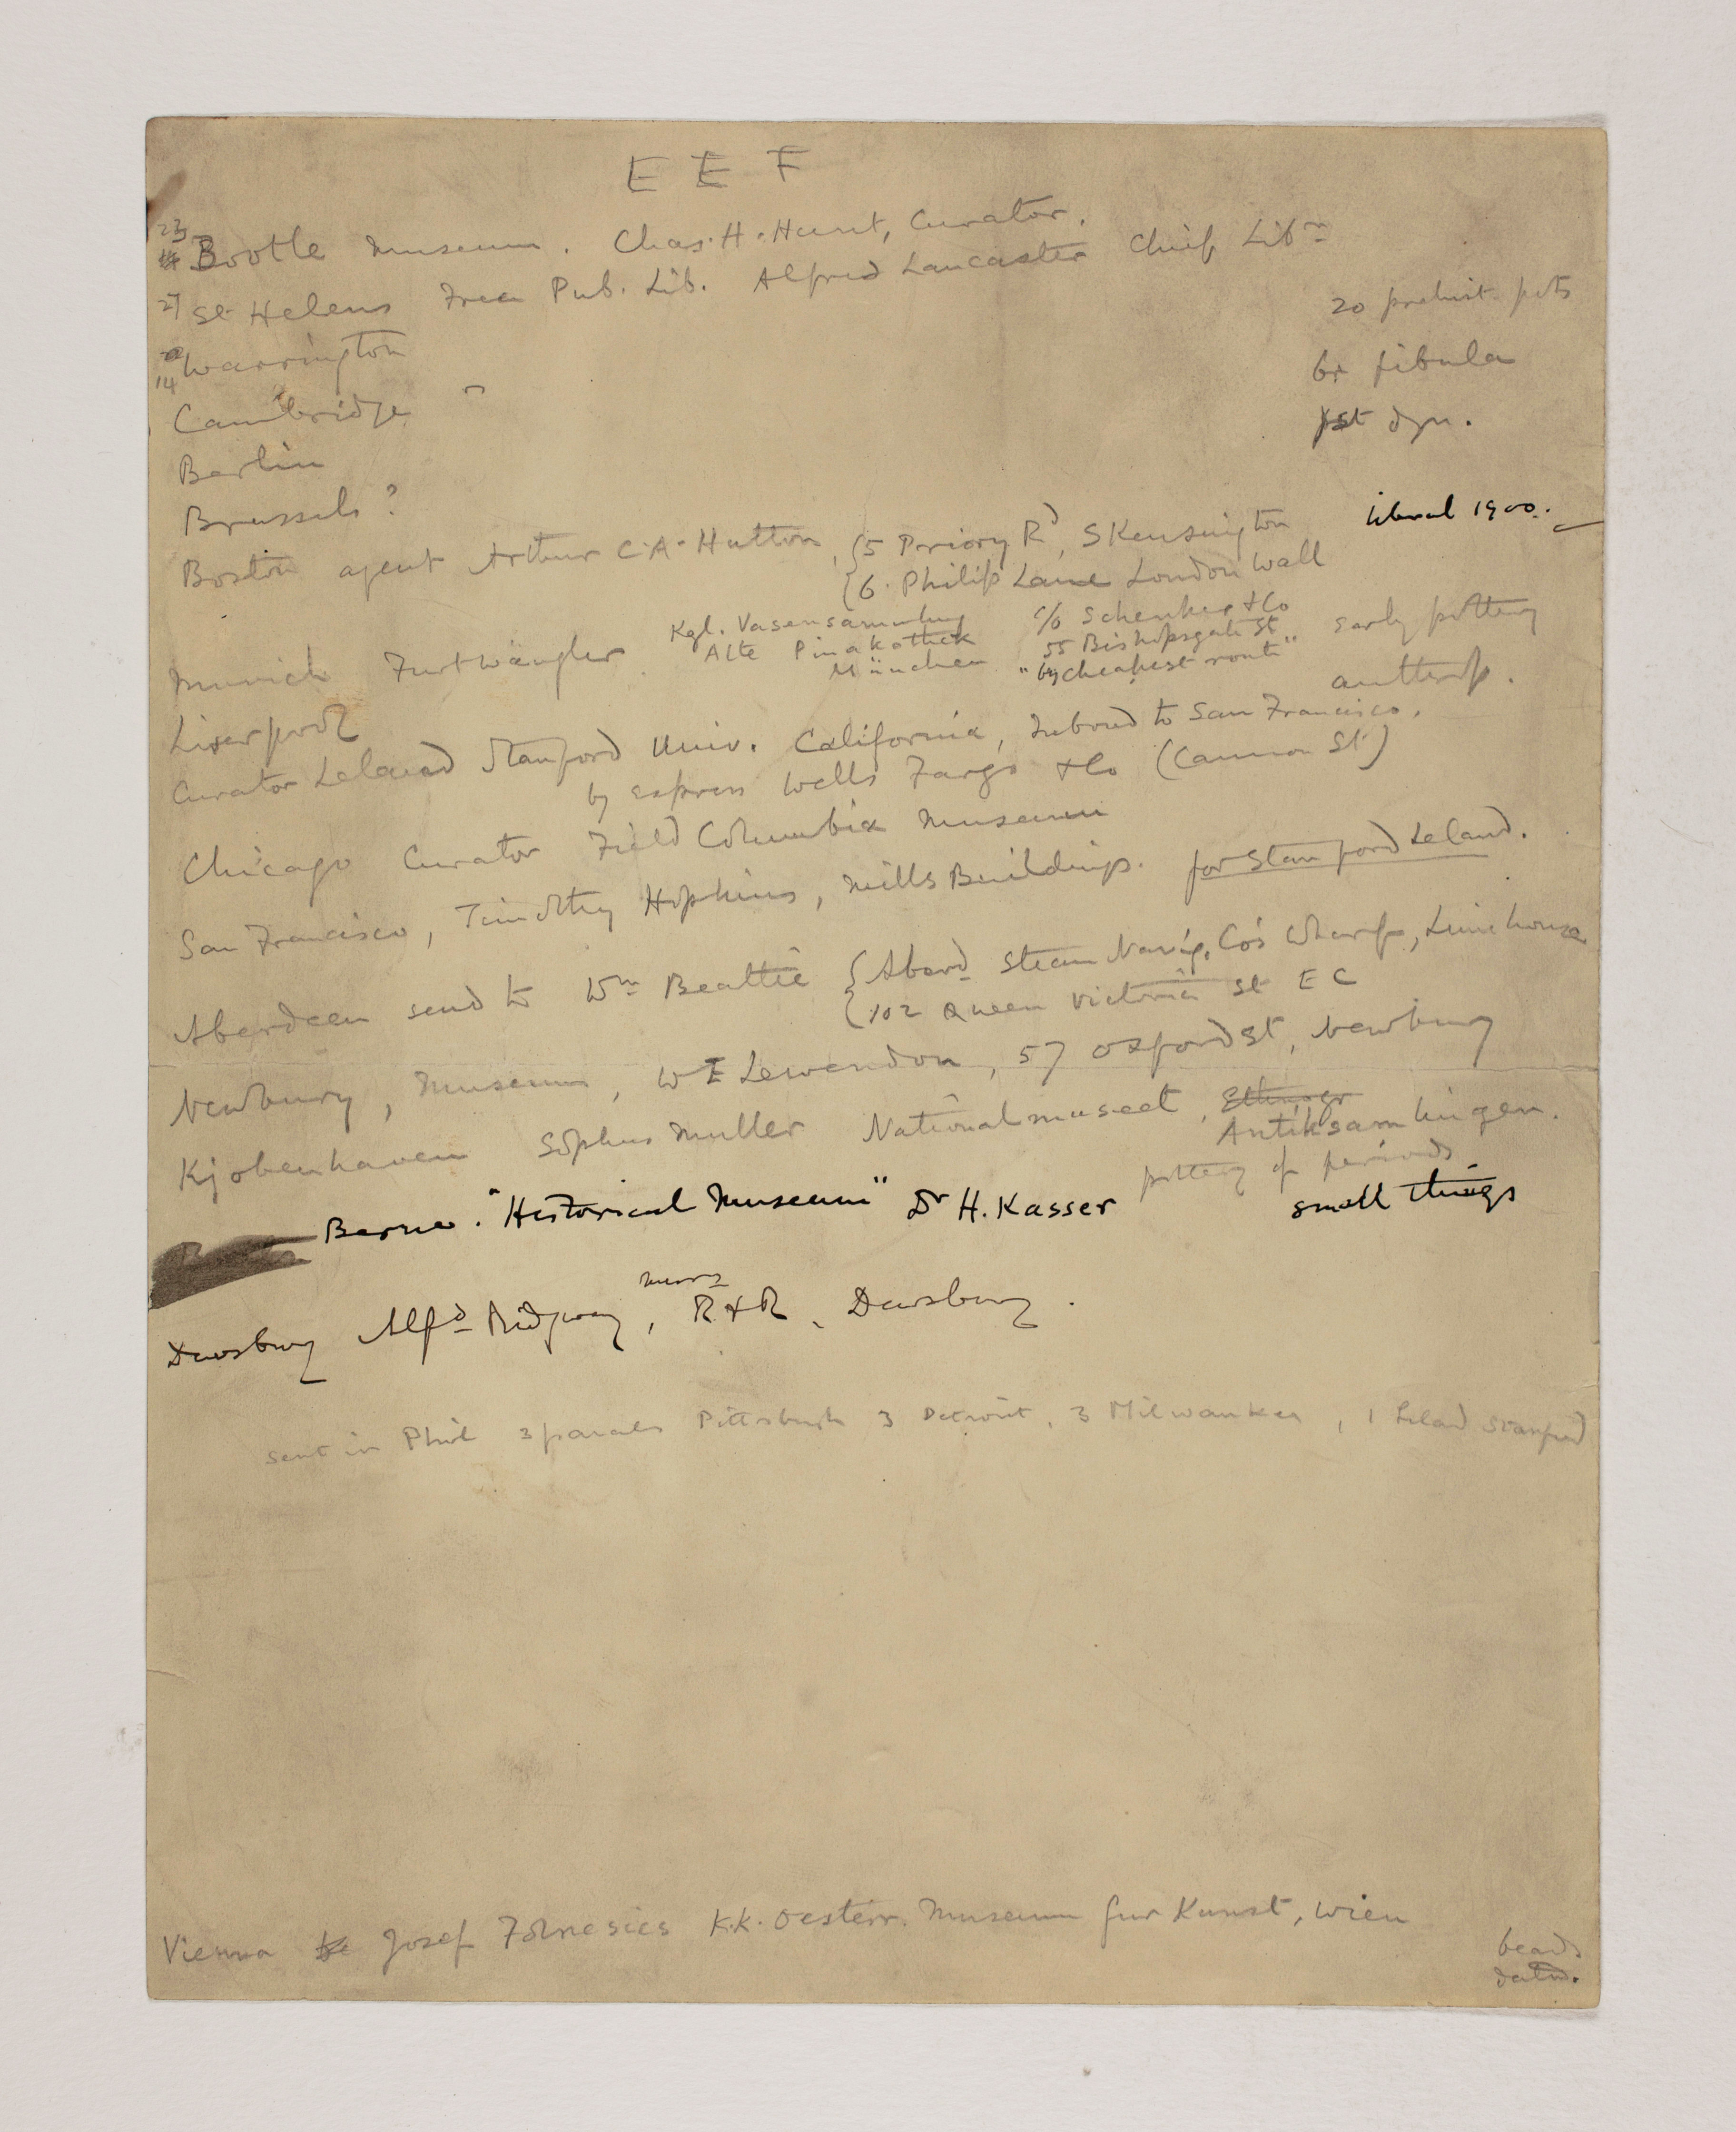 E E F
23 Bootle Museum. Chas. H. Hunt, Curator.
27 St Helens Free Pub. Lib. Alfred Lancaster Chief Libn
20 prehist. pots
14 Warrington
br fibula
Cambridge
1st dyn.
Berlin
Brussels?
liberal 1900.
Boston agent Arthur C. A. Hutton, {5 Priory Rd, S Kensington
{6. Philip Lane London Wall
Munich Furtwängler Kgl. Vasensammlung c/o Schenker & Co early pottery
Alte Pinakothek 55 Bishopsgate St
München "by cheapest route"
Liverpool anthrop.
Curator Leland Stanford Univ. California, Inbond to San Francisco,
by express Wells Fargo & Co (Cannon St)
Chicago Curator Field Columbia Museum
San Francisco, Timothy Hopkins, Mills Buildings. for Stanford Leland.
Aberdeen send to Wm Beattie {Aberd. Steam Navig. Co's Wharf, Limehouse
{102 Queen Victoria St E C
Newbury, Museum, W E Lewendon, 57 Oxford St, Newbury
Kjobenhaven Sophus Muller Nationalmuseet,
Antiksamlingen.
pottery of periods
Berne. "Historical Museum" Dr H. Kasser small things
Dewsbury Alfd Ridgway, Museum R & R, Dewsbury.
sent in Phil 3 parcels Pittsburgh 3 Detroit, 3 Milwaukee, 1 Leland Stanford
Vienna Josef Folnesics K.K. Oesterr. Museum fur Kunst, Wien
beads
dated.